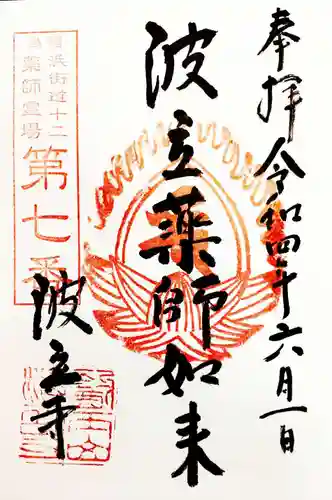 奉拝 令和四年六月一日
波立薬師如来
波立寺
浜街道十二
薬師霊場
第七番